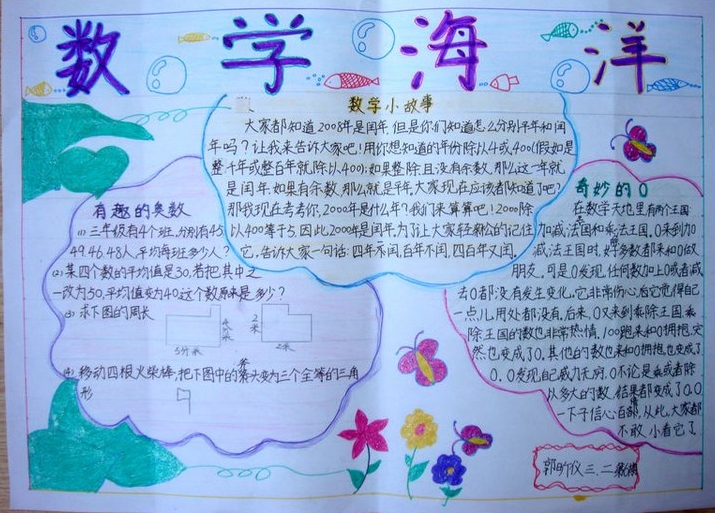 数学海洋
数学小故事
大家都知道2008年是闰年,但是你们知道怎么分别平年和闰
年吗?让我来告诉大家吧!用你想知道的年份除以4或400(假如是
整千年或整百年就除以400);如果整除且没有余数,那么这一年就
是闰年.如果有余数,那么就是平年,大家现在应该都知道了吧?
那我现在考考你,2000年是什么年?我们来算算吧!2000除
以400等于5.因此2000年是闰年.为了让大家轻松的记住
它,告诉大家一句话:四年不闰,百年不闰,四百年又闰.
有趣的奥数
(1)三年级有4个班.分别有45
49.46.48人,平均每班多少人?
(2)某四个数的平均值是30,若把其中之
一改为50,平均值变为40.这个数原来是多少?
(3)求下图的周长
5分米
2米
2米
(4)移动四根火柴棒,把下图中的斧头变为三个全等的三角
形
奇妙的0
在数学天地里有两个王国
加减法国和乘法王国.0来到加
减法王国时,好多数都来和0做
朋友.可是0发现,任何数加上0或者减
去0都没有发生变化.它非常伤心后它觉得自己
一点儿用处都没有.后来,0又来到乘除王国.乘
除王国的数也非常热情.100跑来和0拥抱.突
然也变成了0.其他的数也来和0拥抱也变成了
0.0发现自己威力无穷.0不论是乘或者除
以多大的数,结果都变成了0.0
一下子信心百倍,从此,大家都
不敢小看它了.
三、二